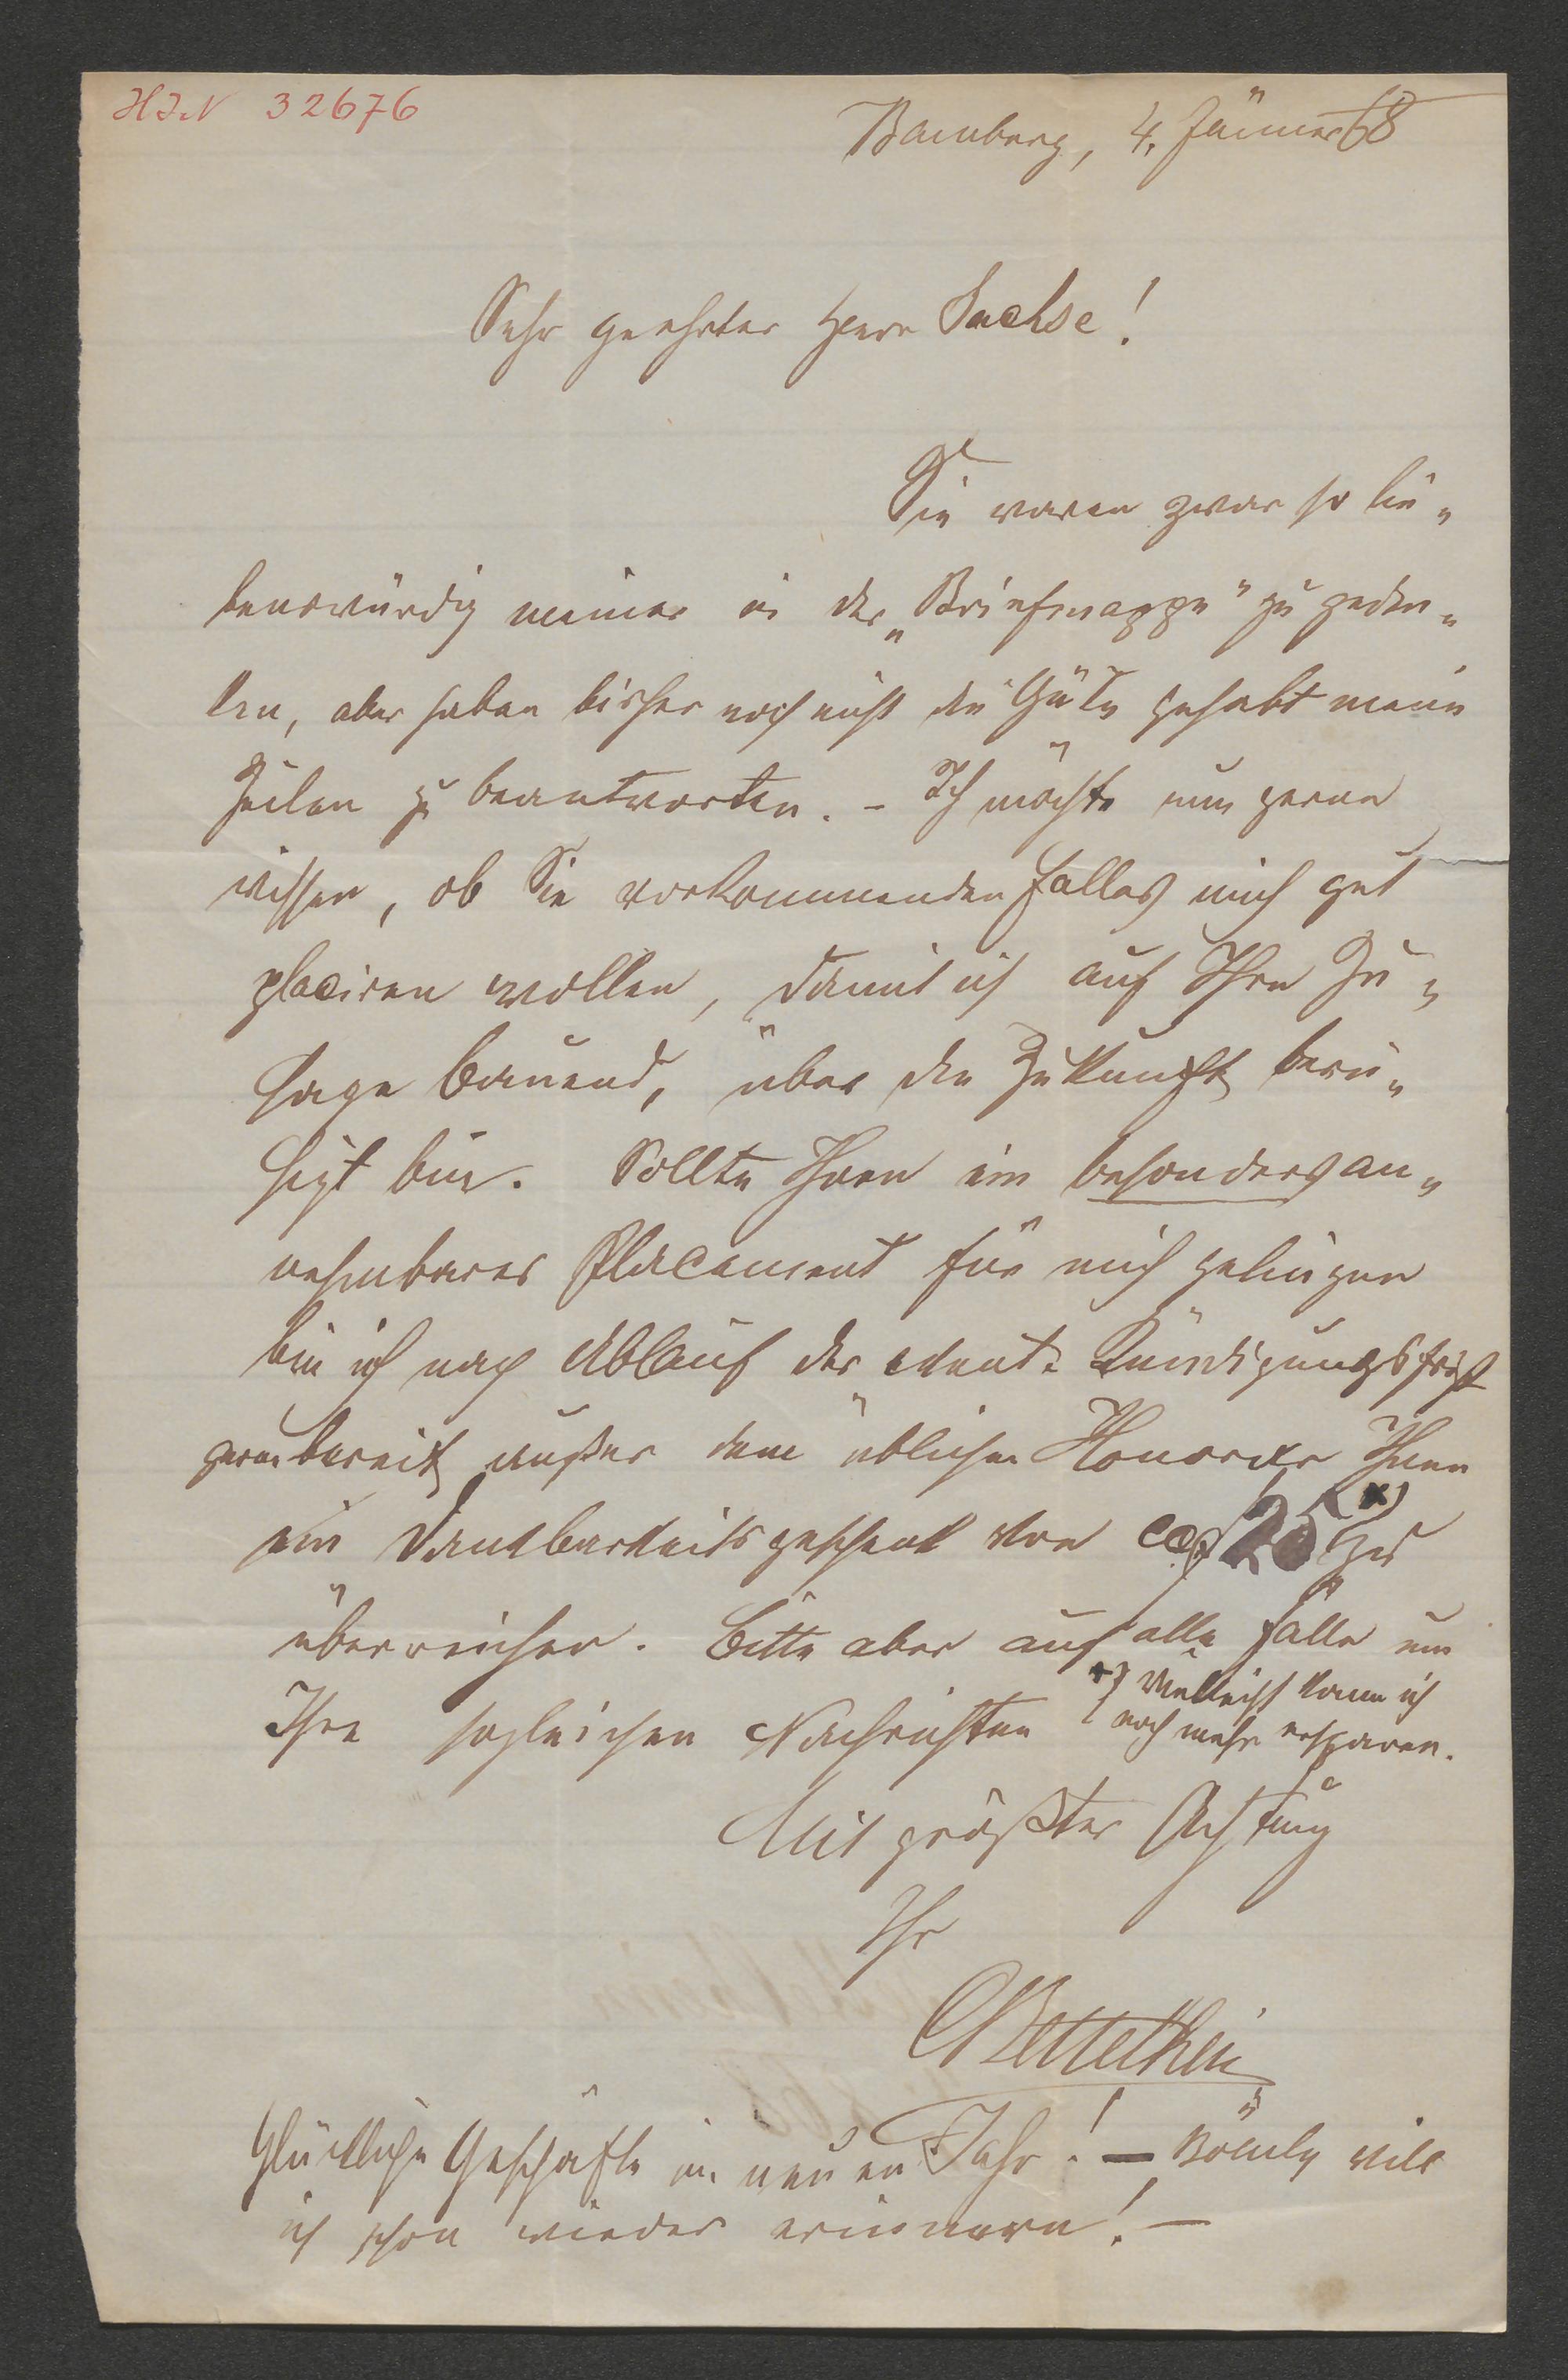 HIN 32676
Bamberg, 4. Jänner 68
Sehr geehrter Herr Sachse!
Sie waren zwar so lie„
benswürdig meiner in der „Briefmappe" zu geden„
ken, aber haben bisher noch nicht die Güte gehabt meine
Zeilen zu beantworten. – Ich möchte nun gerne
wissen, ob Sie vorkommenden Falles mich gut
placiren wollen, damit ich auf Ihre Zu„
sage bauend, über die Zukunft beru„
higt bin. Sollte Ihnen ein besonders an„
nehmbares Placement für mich gelingen
bin ich nach Ablauf der event. Kündigungsfrist
gerne bereit außer dem üblichen Honorar Ihnen
ein Dankbarkeitsgeschenk von 25 *) zu
überreichen. Bitte aber auf alle Fälle um
Ihre sogleichen Nachrichten
*) Vielleicht kann ich
noch mehr ersparen.
Mit größter Achtung
Ihr
CBettelhei
Glückliche Geschäfte im neuen Jahr! — will
ich schon wieder erinnern! —